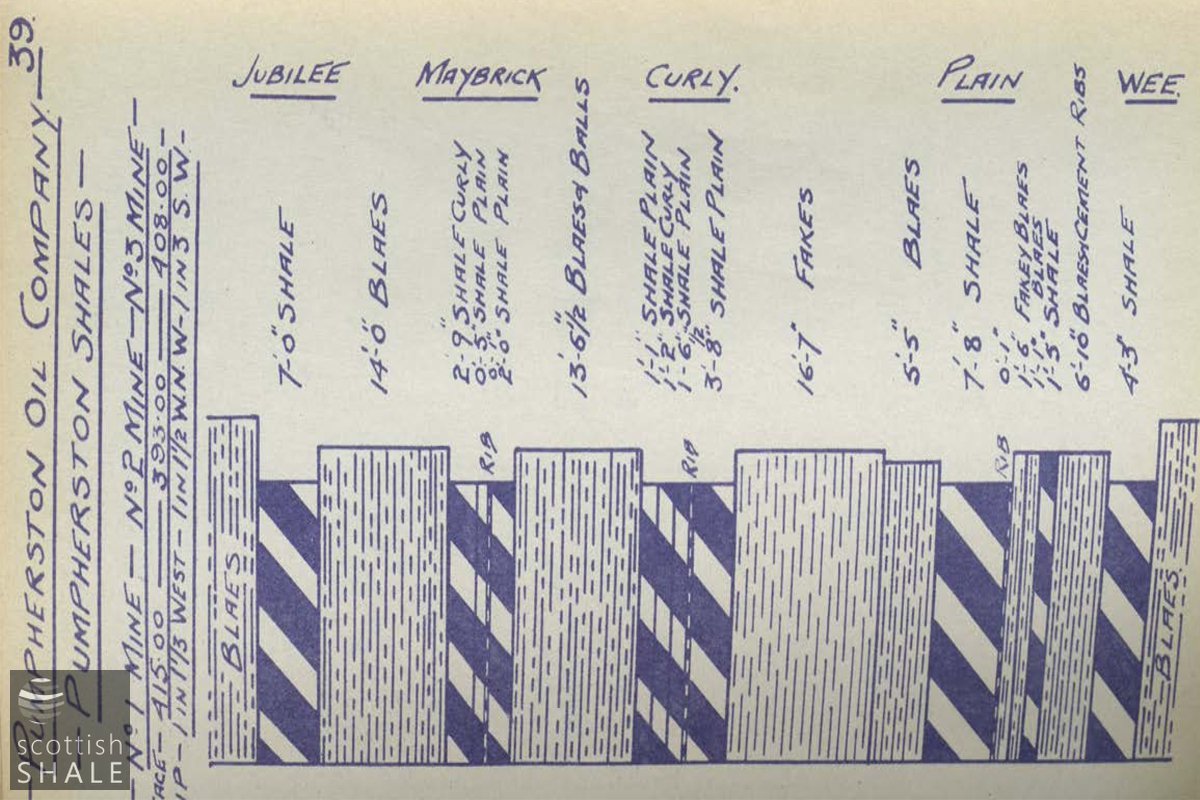 — PUMPHERSTON OIL COMPANY — 39.
— PUMPHERSTON SHALES —
— No 1 MINE — No 2 MINE — No 3 MINE —
FACE — 415.00 — 393.00 — 408.00 —
IP — 1 IN 1 1/3 WEST — 1 IN 1 1/2 W.N.W — 1 IN 3 S.W —
BLAES
JUBILEE
7'-0" SHALE
14'-0" BLAES
MAYBRICK
2'-9" SHALE CURLY
0'-3" SHALE PLAIN
2'-0" SHALE PLAIN
RIB
13'-6 1/2" BLAES & BALLS
CURLY.
1'-1" SHALE PLAIN
1'-2" SHALE CURLY
1'-6" SHALE PLAIN
3'-8 1/2" SHALE PLAIN
RIB
16'-7" FAKES
5'-5" BLAES
PLAIN
7'-8" SHALE
0'-1"
RIB
1'-6" FAKEY BLAES
1'-1" BLAES
1'-5" SHALE
6'-10" BLAES & CEMENT RIBS
WEE.
4'-3" SHALE
BLAES
scottish
SHALE